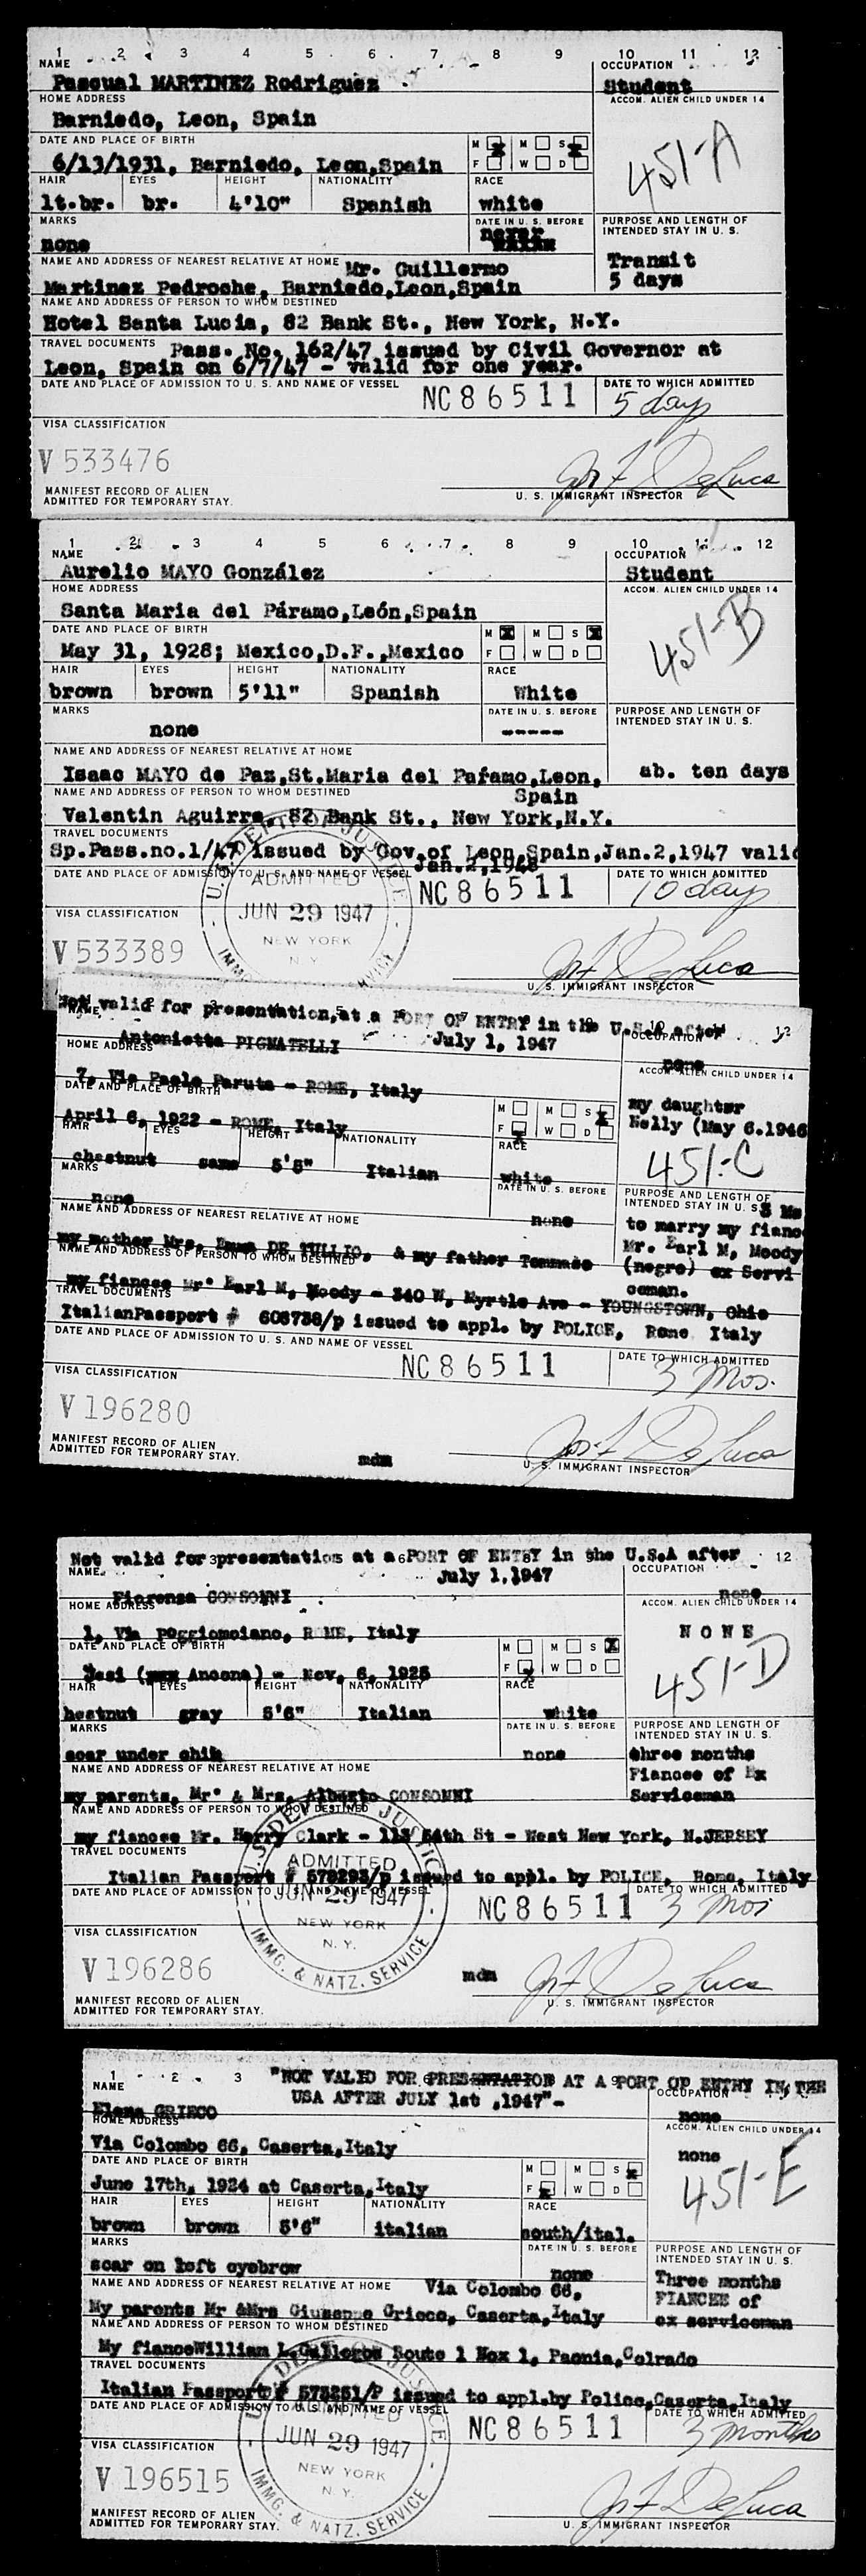 1 2 3 4 5 6 7 8 9 10 11 12
NAME OCCUPATION
Pascual MARTINEZ Rodriguez Student
HOME ADDRESS ACCOM. ALIEN CHILD UNDER 14
Barniedo, Leon, Spain
451-A
DATE AND PLACE OF BIRTH M M S
6/13/1931, Barniedo, Leon,Spain F W D
HAIR EYES HEIGHT NATIONALITY RACE
lt.br. br. 4'10" Spanish white
MARKS DATE IN U. S. BEFORE PURPOSE AND LENGTH OF INTENDED STAY IN U. S.
none never
Transit
5 days
NAME AND ADDRESS OF NEAREST RELATIVE AT HOME Mr. Guillermo
Martinez Pedroche, Barniedo,Leon,Spain
NAME AND ADDRESS OF PERSON TO WHOM DESTINED
Hotel Santa Lucia, 82 Bank St., New York, N.Y.
TRAVEL DOCUMENTS Pass. No. 162/47 issued by Civil Governor at
Leon, Spain on 6/7/47 - valid for one year.
DATE AND PLACE OF ADMISSION TO U. S. AND NAME OF VESSEL DATE TO WHICH ADMITTED
NC 86511 5 days
VISA CLASSIFICATION
V 533476
Jos F DeLuca
MANIFEST RECORD OF ALIEN
ADMITTED FOR TEMPORARY STAY. U. S. IMMIGRANT INSPECTOR
1 2 3 4 5 6 7 8 9 10 11 12
NAME OCCUPATION
Aurelio MAYO González Student
HOME ADDRESS ACCOM. ALIEN CHILD UNDER 14
Santa Maria del Páramo,León,Spain
451-B
DATE AND PLACE OF BIRTH M M S
May 31, 1928; Mexico,D.F.,Mexico F W D
HAIR EYES HEIGHT NATIONALITY RACE
brown brown 5'11" Spanish White
MARKS DATE IN U. S. BEFORE PURPOSE AND LENGTH OF INTENDED STAY IN U. S.
none -----
NAME AND ADDRESS OF NEAREST RELATIVE AT HOME
Isaac MAYO de Paz,St.Maria del Páramo,Leon, ab. ten days
NAME AND ADDRESS OF PERSON TO WHOM DESTINED Spain
Valentin Aguirre, 82 Bank St., New York,N.Y.
TRAVEL DOCUMENTS
Sp.Pass.no.1/47 issued by Gov.of Leon,Spain,Jan.2,1947 valid
Jan.2,1948
DATE AND PLACE OF ADMISSION TO U. S. AND NAME OF VESSEL DATE TO WHICH ADMITTED
U. S. DEPT. OF JUSTICE ADMITTED JUN 29 1947 NEW YORK N. Y. IMMG. SERVICE
NC 86511 10 days
VISA CLASSIFICATION
V 533389
Jos F DeLuca
U. S. IMMIGRANT INSPECTOR
Not valid for presentation,at a PORT OF ENTRY in the U.S.A after
NAME July 1, 1947 OCCUPATION 12
Antonietta PIGNATELLI none
HOME ADDRESS ACCOM. ALIEN CHILD UNDER 14
7, Via Paolo Paruta - ROME, Italy
my daughter
Nelly (May 6.1946
451-C
DATE AND PLACE OF BIRTH M M S
April 6, 1922 - ROME, Italy F W D
HAIR EYES HEIGHT NATIONALITY RACE
chestnut same 5'5" Italian white
MARKS DATE IN U. S. BEFORE PURPOSE AND LENGTH OF INTENDED STAY IN U. S. 3 Mo
none none
to marry my fiance
Mr. Earl M, Moody
(negro) ex Servi
ceman.
NAME AND ADDRESS OF NEAREST RELATIVE AT HOME
my mother Mrs. Emma DE TULLIO, & my father Tommaso
NAME AND ADDRESS OF PERSON TO WHOM DESTINED
my fiancee Mr. Earl M, Moody - 340 W, Myrtle Ave - YOUNGSTOWN, Ohio
TRAVEL DOCUMENTS
ItalianPassport # 606738/p issued to appl. by POLICE, Rome Italy
DATE AND PLACE OF ADMISSION TO U. S. AND NAME OF VESSEL DATE TO WHICH ADMITTED
NC 86511 3 Mos.
VISA CLASSIFICATION
V 196280
Jos. F DeLuca
MANIFEST RECORD OF ALIEN
ADMITTED FOR TEMPORARY STAY. mdm U. S. IMMIGRANT INSPECTOR
Not valid for presentation at a PORT OF ENTRY in the U.S.A after 12
NAME July 1.1947 OCCUPATION
Fiorenza CONSONNI none
HOME ADDRESS ACCOM. ALIEN CHILD UNDER 14
1, Via Poggiomoiano, ROME, Italy NONE
451-D
DATE AND PLACE OF BIRTH M M S
Jesi (Ancona) - Nov. 6, 1925 F W D
HAIR EYES HEIGHT NATIONALITY RACE
hestnut gray 5'6" Italian white
MARKS DATE IN U. S. BEFORE PURPOSE AND LENGTH OF INTENDED STAY IN U. S.
scar under chin none three months
Fiancee of Ex
Serviceman
NAME AND ADDRESS OF NEAREST RELATIVE AT HOME
my parents, Mr. & Mrs. Alberto CONSONNI
NAME AND ADDRESS OF PERSON TO WHOM DESTINED
my fiancee Mr. Harry Clark - 54th St - West New York, N.JERSEY
TRAVEL DOCUMENTS
Italian Passport # 578293/p issued to appl. by POLICE, Rome, Italy
DATE AND PLACE OF ADMISSION TO U. S. AND NAME OF VESSEL DATE TO WHICH ADMITTED
U. S. DEPT. OF JUSTICE ADMITTED JUN 29 1947 NEW YORK N. Y. IMMG. & NATZ. SERVICE
NC 86511 3 Mos
VISA CLASSIFICATION
V 196286
mdm Jos F DeLuca
MANIFEST RECORD OF ALIEN
ADMITTED FOR TEMPORARY STAY. U. S. IMMIGRANT INSPECTOR
1 2 3 "NOT VALID FOR PRESENTATION AT A PORT OF ENTRY IN THE
NAME USA AFTER JULY 1st ,1947"- OCCUPATION
Elena GRIECO none
HOME ADDRESS ACCOM. ALIEN CHILD UNDER 14
Via Colombo 66, Caserta,Italy none
451-E
DATE AND PLACE OF BIRTH M M S
June 17th, 1924 at Caserta,Italy F W D
HAIR EYES HEIGHT NATIONALITY RACE
brown brown 5'6" italian south/ital.
MARKS DATE IN U. S. BEFORE PURPOSE AND LENGTH OF INTENDED STAY IN U. S.
scar on left eyebrow none Three months
FIANCEE of
ex serviceman
NAME AND ADDRESS OF NEAREST RELATIVE AT HOME Via Colombo 66,
My parents Mr &Mrs Giuseppe Grieco, Caserta,Italy
NAME AND ADDRESS OF PERSON TO WHOM DESTINED
My fianceWilliam L.Gallegos Route 1 Box 1, Paonia,Colrado
TRAVEL DOCUMENTS
Italian Passport # 578251/P issued to appl.by Police,Caserta,Italy
DATE AND PLACE OF ADMISSION TO U. S. AND NAME OF VESSEL DATE TO WHICH ADMITTED
DEPT. OF JUSTICE ADMITTED JUN 29 1947 NEW YORK N. Y. IMMG. & NATZ. SERVICE
NC 86511 3 months
VISA CLASSIFICATION
V 196515
Jos F DeLuca
MANIFEST RECORD OF ALIEN
ADMITTED FOR TEMPORARY STAY. U. S. IMMIGRANT INSPECTOR